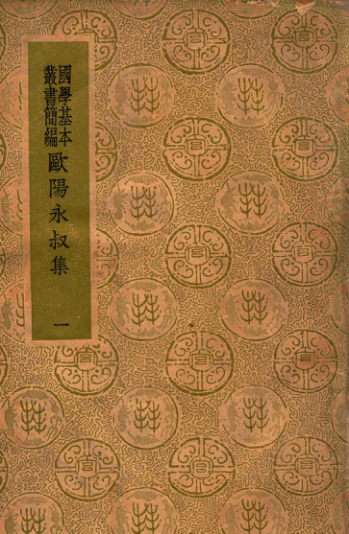 國學基本
叢書簡編
歐陽永叔集
一